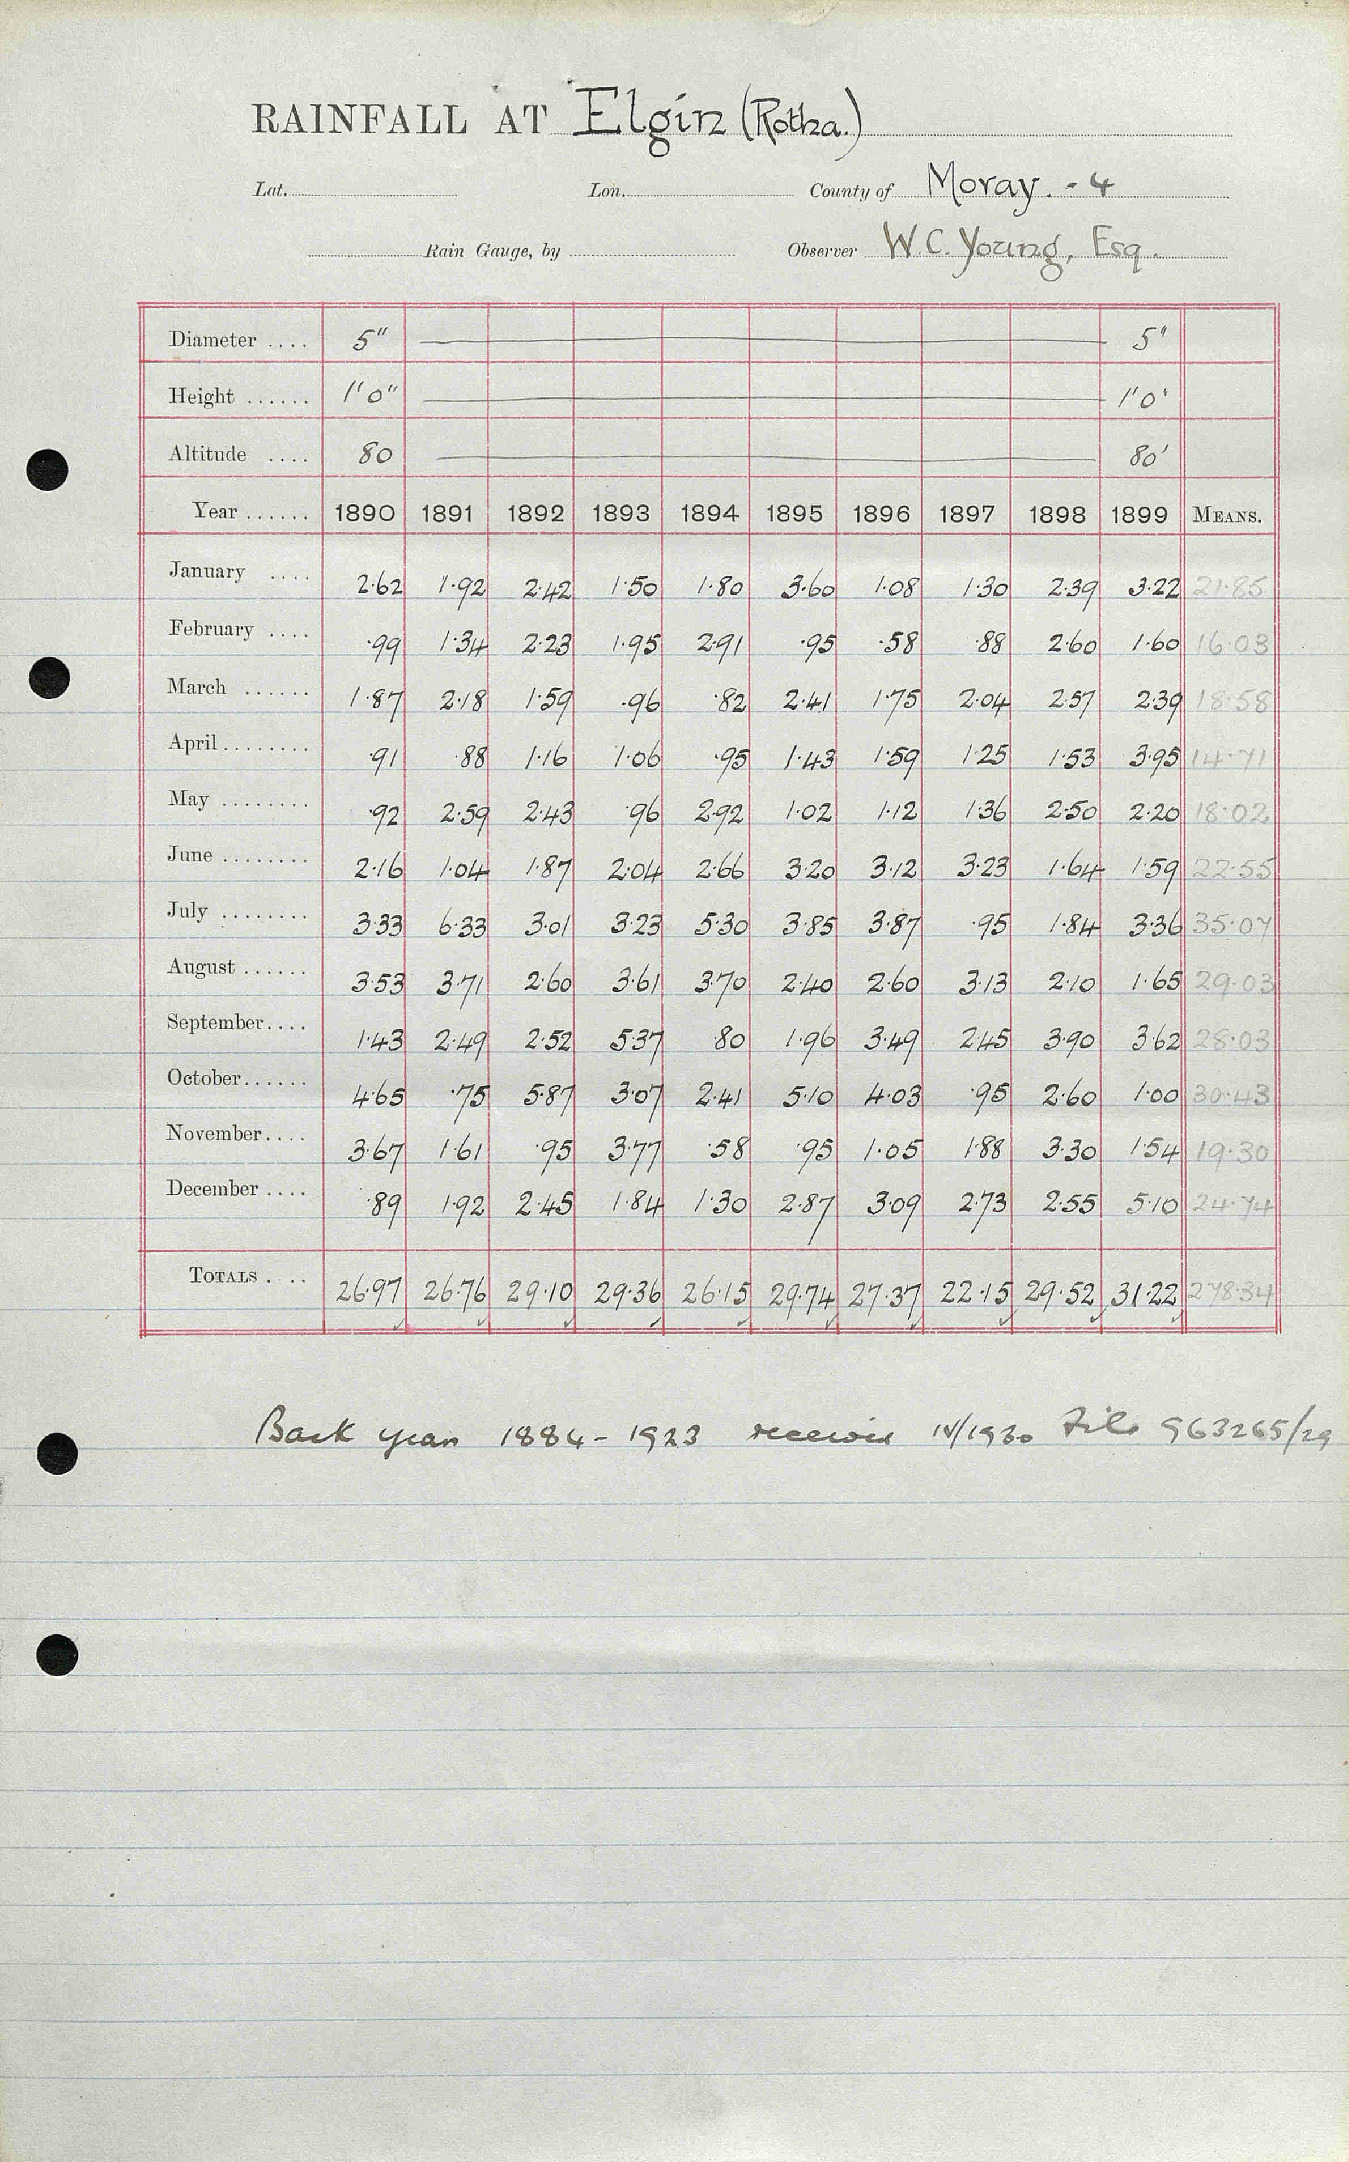 RAINFALL AT Elgin (Rotha.)
Lat. Lon. County of Moray. - 4
Rain Gauge, by Observer W.C. Young, Esq.
Diameter .... 5" 5"
Height ...... 1'0" 1'0"
Altitude .... 80 80'
Year ...... 1890 1891 1892 1893 1894 1895 1896 1897 1898 1899 MEANS.
January .... 2.62 1.92 2.42 1.50 1.80 3.60 1.08 1.30 2.39 3.22 21.85
February .... .99 1.34 2.23 1.95 2.91 .95 .58 .88 2.60 1.60 16.03
March ...... 1.87 2.18 1.59 .96 .82 2.41 1.75 2.04 2.57 2.39 18.58
April ........ .91 .88 1.16 1.06 .95 1.43 1.59 1.25 1.53 3.95 14.71
May ........ .92 2.59 2.43 .96 2.92 1.02 1.12 1.36 2.50 2.20 18.02
June ........ 2.16 1.04 1.87 2.04 2.66 3.20 3.12 3.23 1.64 1.59 22.55
July ........ 3.33 6.33 3.01 3.23 5.30 3.85 3.87 .95 1.84 3.36 35.07
August ...... 3.53 3.71 2.60 3.61 3.70 2.40 2.60 3.13 2.10 1.65 29.03
September.... 1.43 2.49 2.52 5.37 .80 1.96 3.49 2.45 3.90 3.62 28.03
October...... 4.65 .75 5.87 3.07 2.41 5.10 4.03 .95 2.60 1.00 30.43
November.... 3.67 1.61 .95 3.77 .58 .95 1.05 1.88 3.30 1.54 19.30
December .... .89 1.92 2.45 1.84 1.30 2.87 3.09 2.73 2.55 5.10 24.74
TOTALS . .. 26.97 26.76 29.10 29.36 26.15 29.74 27.37 22.15 29.52 31.22 278.34
Back years 1884 - 1923 received IV/1930 File 963265/29